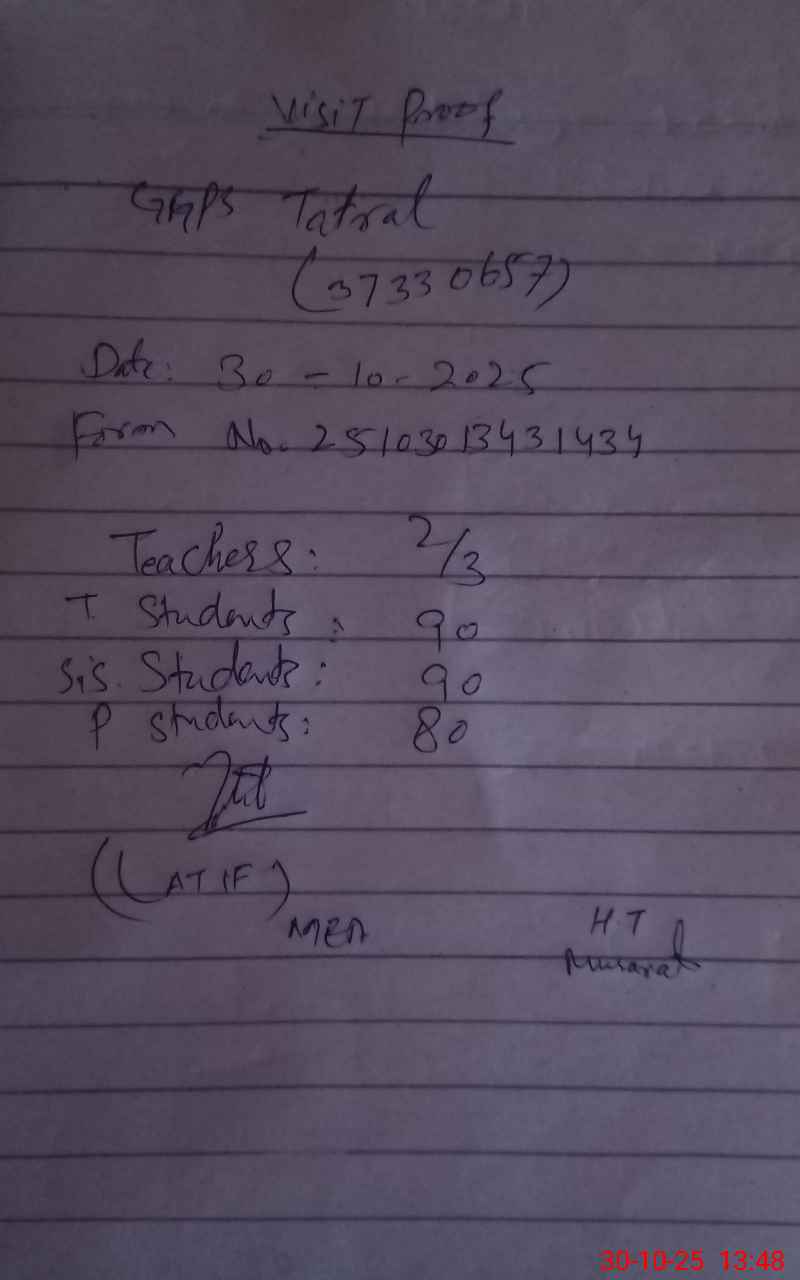 Visit Proof
GGPS Tatral
(37330657)
Date: 30-10-2025
Form No. 25103013431434
Teachers: 2/3
T. Students: 90
S.i.S. Students: 90
P Students: 80
(LATIF)
MEA
H.T
Musarat
30-10-25 13:48